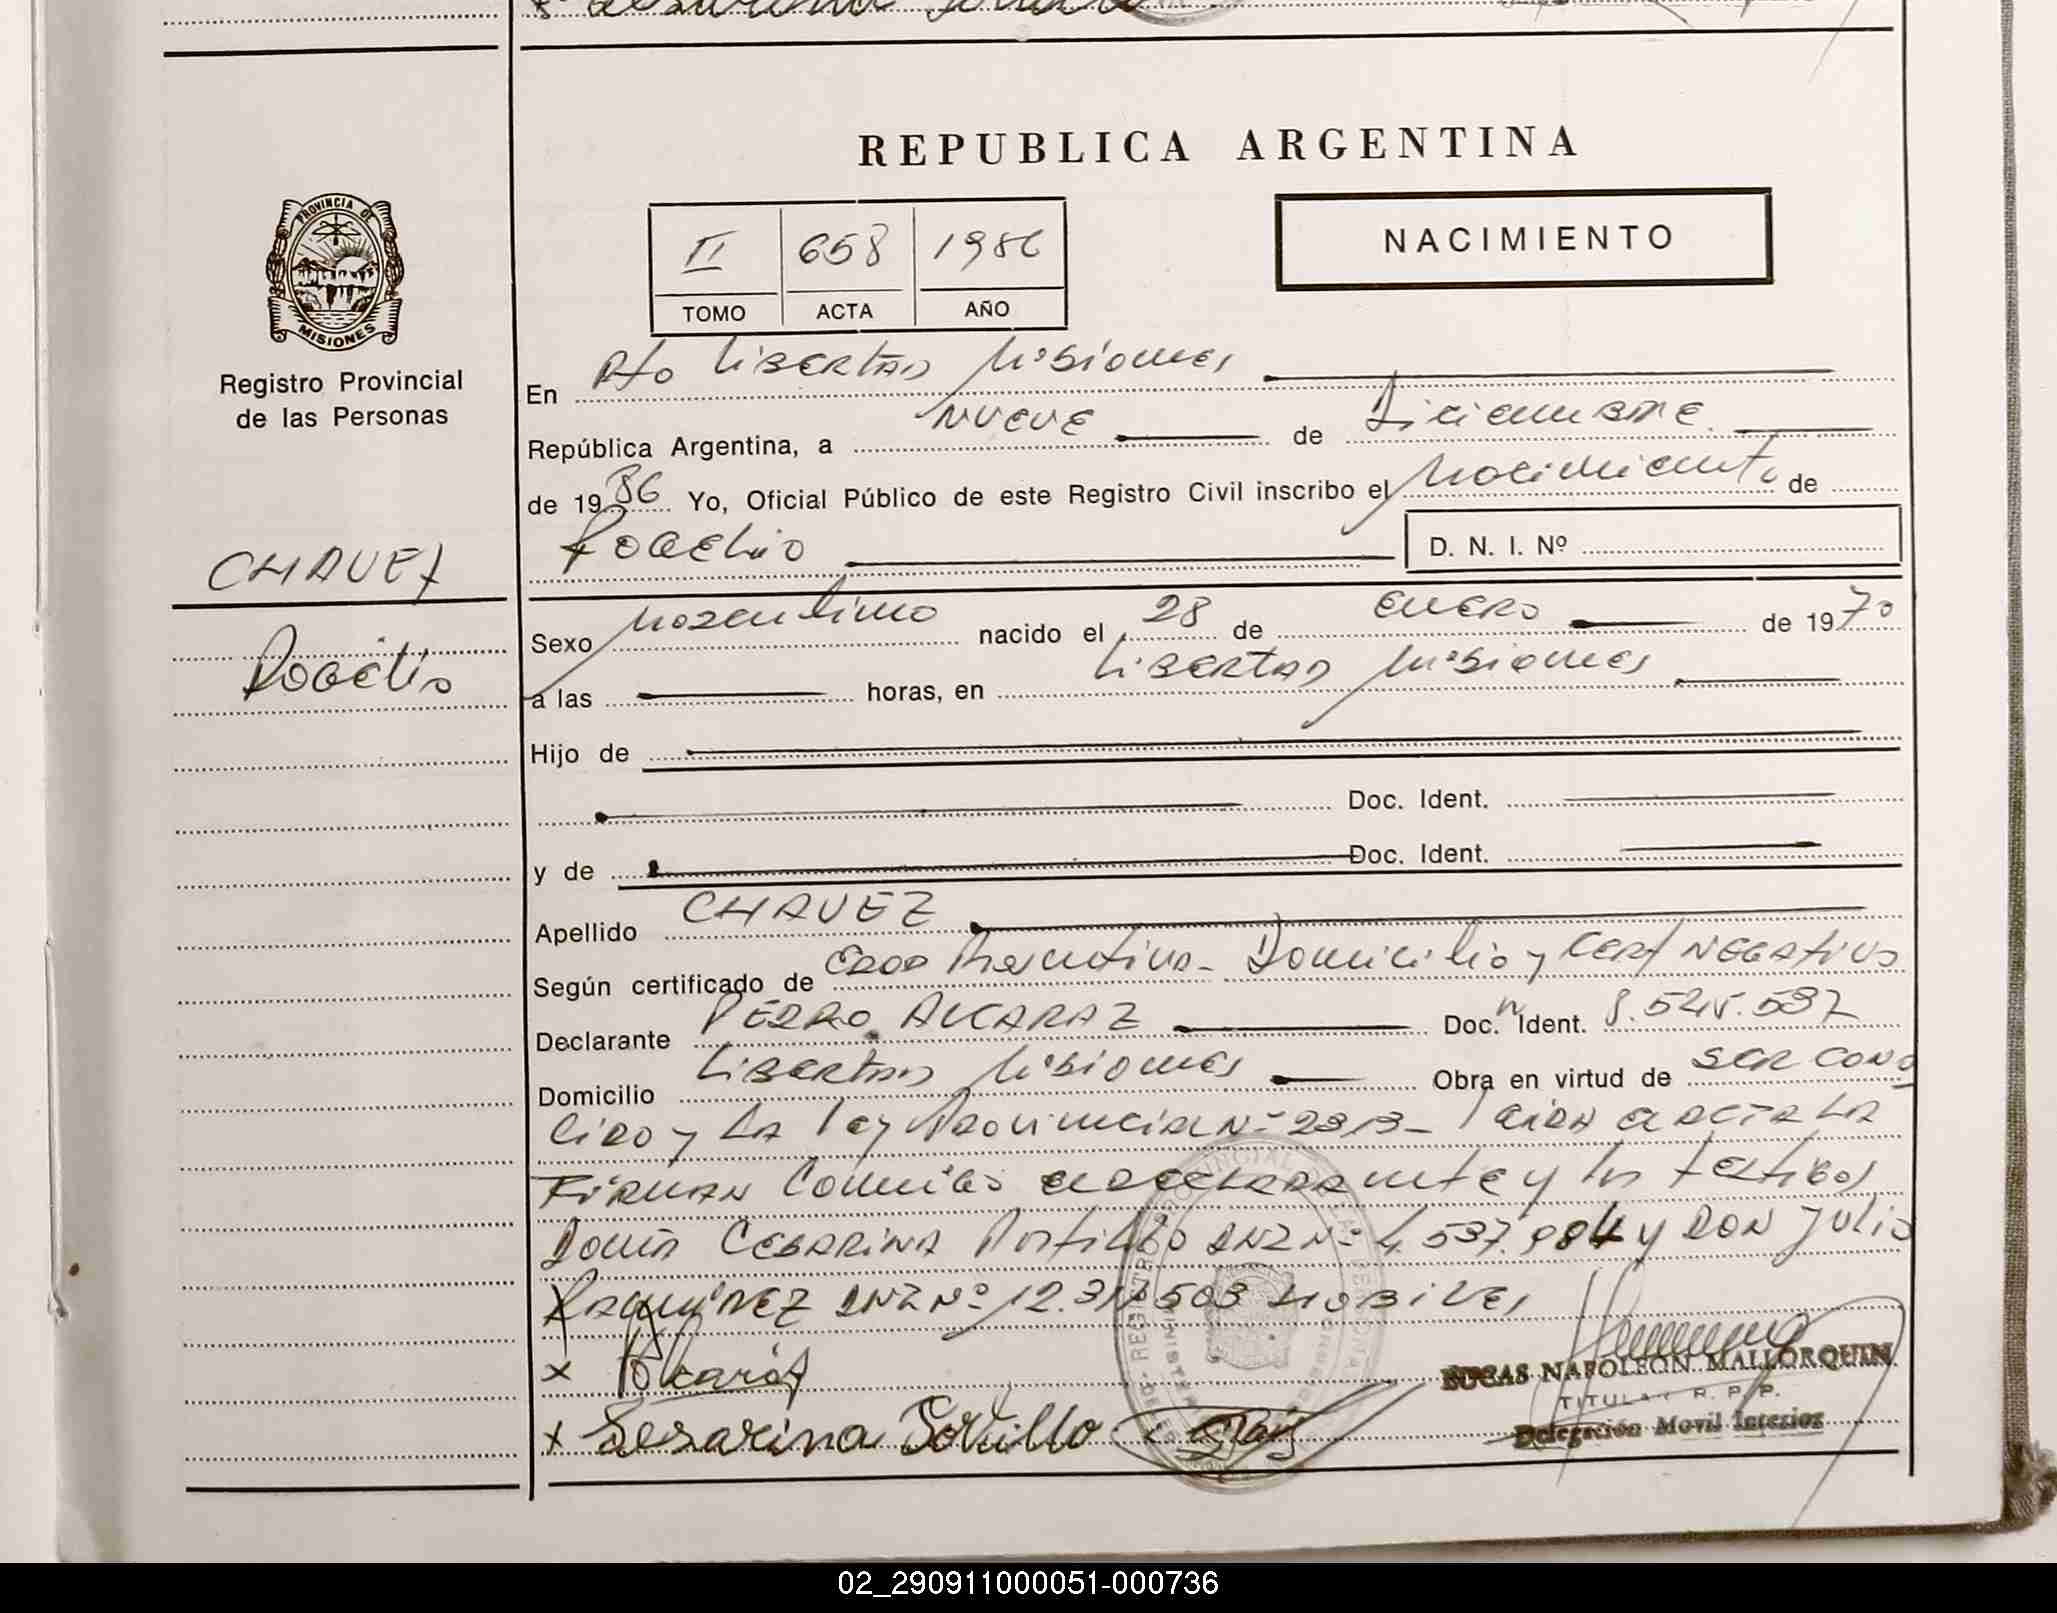 REPUBLICA ARGENTINA
PROVINCIA DE
MISIONES
Registro Provincial
de las Personas
II 658 1986
TOMO ACTA AÑO
NACIMIENTO
En Pto Libertad Misiones
República Argentina, a NUEVE de Diciembre
de 1986 Yo, Oficial Público de este Registro Civil inscribo el Nacimiento de
Rogelio
D. N. I. Nº
CHAVEZ
Rogelio
Sexo Masculino nacido el 28 de ENERO de 1970
a las horas, en Libertad Misiones
Hijo de
y Doc. Ident.
y de Doc. Ident.
Apellido CHAVEZ
Según certificado de Edad Domicilio y Cert NEGATIVO
Declarante PEDRO ALCARAZ Doc. Ident. 8.545.537
Domicilio Libertad Misiones Obra en virtud de SER CONO
CIDO y LA Ley Provincial Nº 2313- Leida el ACTA LA
FIRMAN Conmigo el declarante y los testigos
Doña CESARINA Portillo DNI Nº 4.537.984 y DON Julio
RAMIREZ DNI Nº 12. 503 HABILES
x PAlcaráz
x Sesarina Portillo
LUCAS NAPOLEON MALLORQUIN
TITULAR R. P. P.
Delegación Movil Interior
02_290911000051-000736